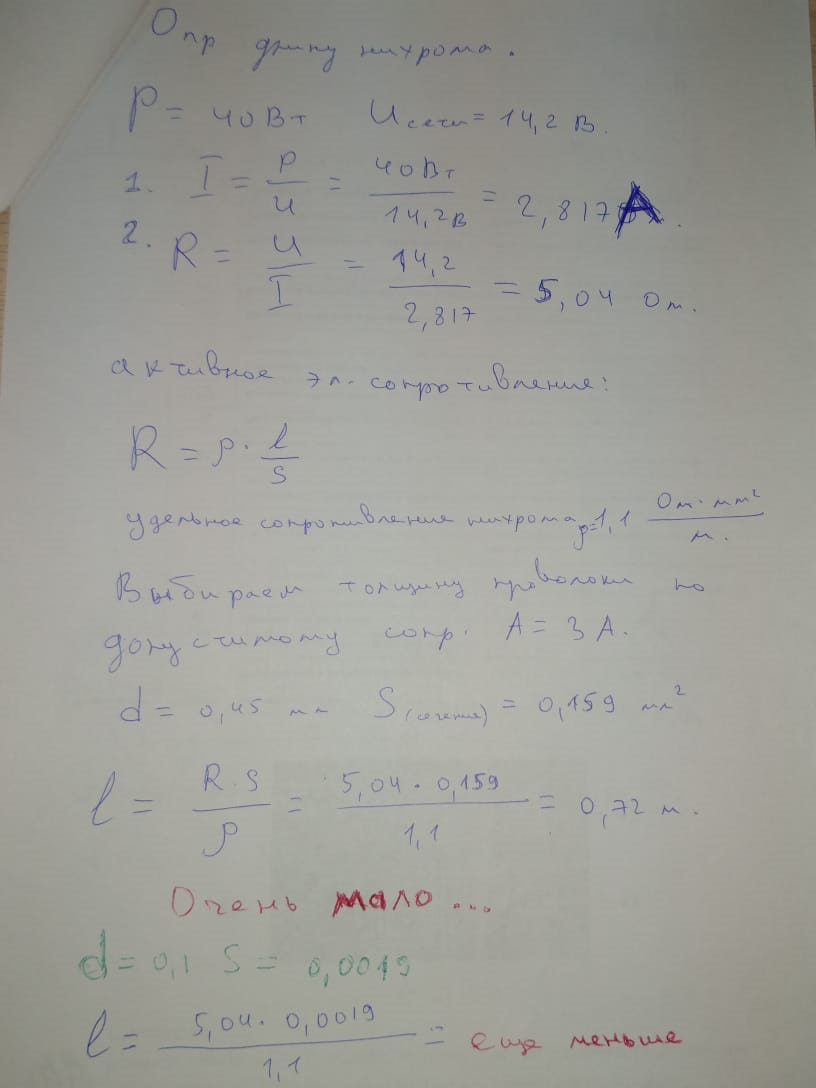 Опр длину нихрома.
P = 40 Вт U сети = 14,2 В.
1. I = P/U = 40Вт/14,2В = 2,817 А.
2. R = U/I = 14,2/2,817 = 5,04 Ом.
активное эл. сопротивление:
R = ρ · l/S
удельное сопротивление нихрома ρ=1,1 Ом·мм²/м.
Выбираем толщину проволоки по
допустимому сопр. A = 3 А.
d = 0,45 мм S(сечения) = 0,159 мм²
l = R·S/ρ = 5,04·0,159/1,1 = 0,72 м.
Очень мало...
d = 0,1 S = 0,0019
l = 5,04·0,0019/1,1 = еще меньше